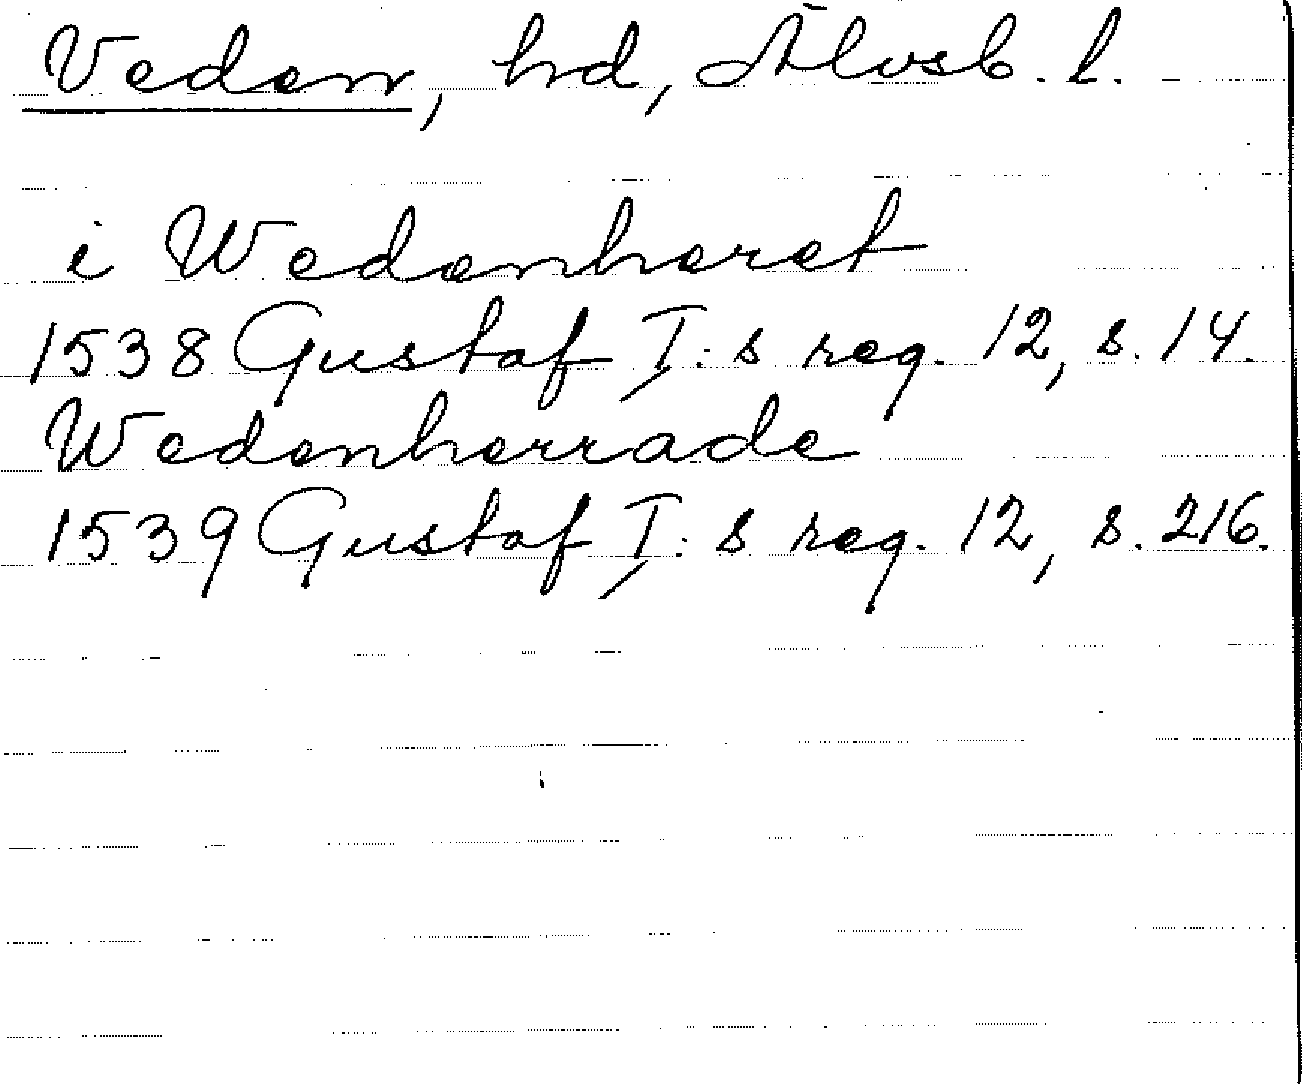 Veden, hd, Älvsb. l.
i Wedenheret
1538 Gustaf I:s reg. 12, s. 14.
Wedenherrade
1539 Gustaf I:s reg. 12, s. 216.